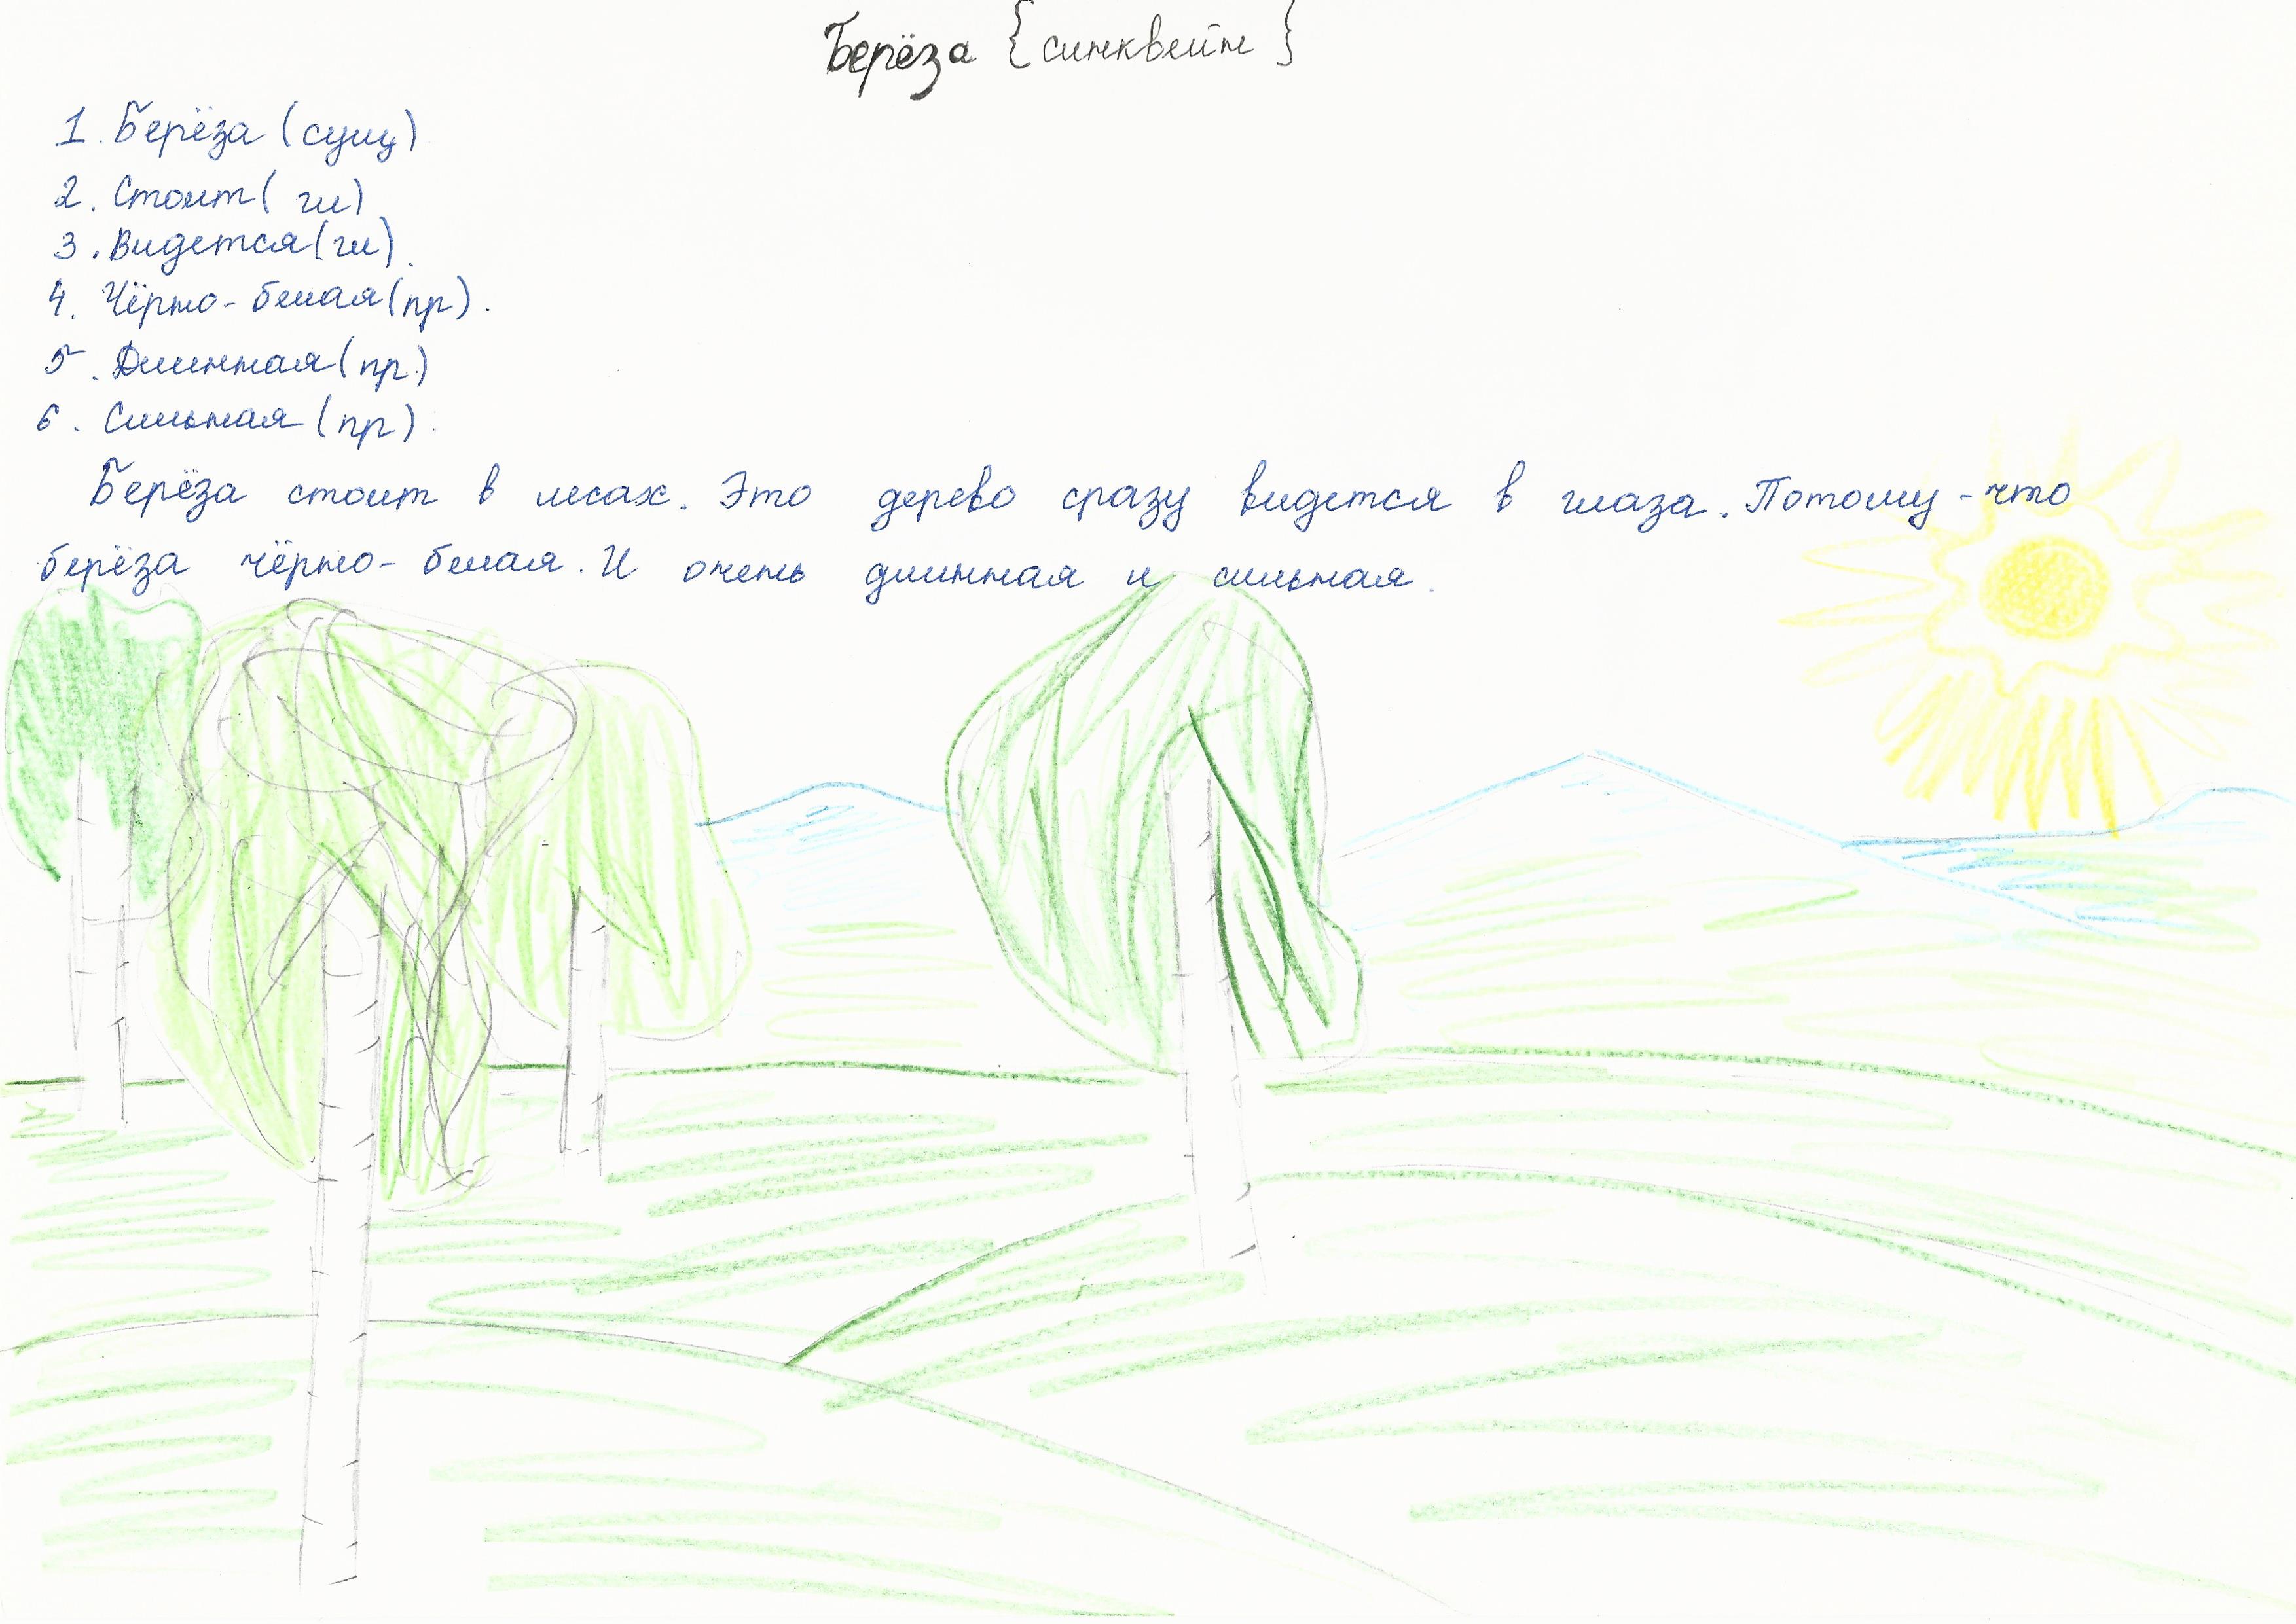 Берёза {синквейн}
1. Берёза (сущ)
2. Стоит( гл)
3. Видется(гл).
4. Чёрно-белая(пр).
5. Длинная(пр)
6. Сильная (пр).
Берёза стоит в лесах. Это дерево сразу видется в глаза. Потому-что
берёза чёрно-белая. И очень длинная и сильная.